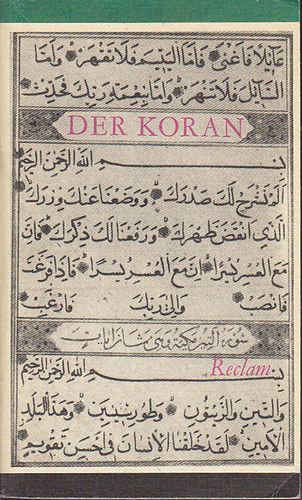 عَائِلًا فَأَغْنَىٰ فَأَمَّا الْيَتِيمَ فَلَا تَقْهَرْ وَأَمَّا
السَّائِلَ فَلَا تَنْهَرْ وَأَمَّا بِنِعْمَةِ رَبِّكَ فَحَدِّثْ
DER KORAN
بِسْمِ اللهِ الرَّحْمٰنِ الرَّحِيمِ
أَلَمْ نَشْرَحْ لَكَ صَدْرَكَ وَوَضَعْنَا عَنْكَ وِزْرَكَ
الَّذِي أَنْقَضَ ظَهْرَكَ وَرَفَعْنَا لَكَ ذِكْرَكَ فَإِنَّ
مَعَ الْعُسْرِ يُسْرًا إِنَّ مَعَ الْعُسْرِ يُسْرًا فَإِذَا فَرَغْتَ
فَانْصَبْ وَإِلَىٰ رَبِّكَ فَارْغَبْ
سورة التين مكية وهي ثمان آيات
Reclam
بِسْمِ اللهِ الرَّحْمٰنِ الرَّحِيمِ
وَالتِّينِ وَالزَّيْتُونِ وَطُورِ سِينِينَ وَهٰذَا الْبَلَدِ
الْأَمِينِ لَقَدْ خَلَقْنَا الْإِنْسَانَ فِي أَحْسَنِ تَقْوِيمٍ